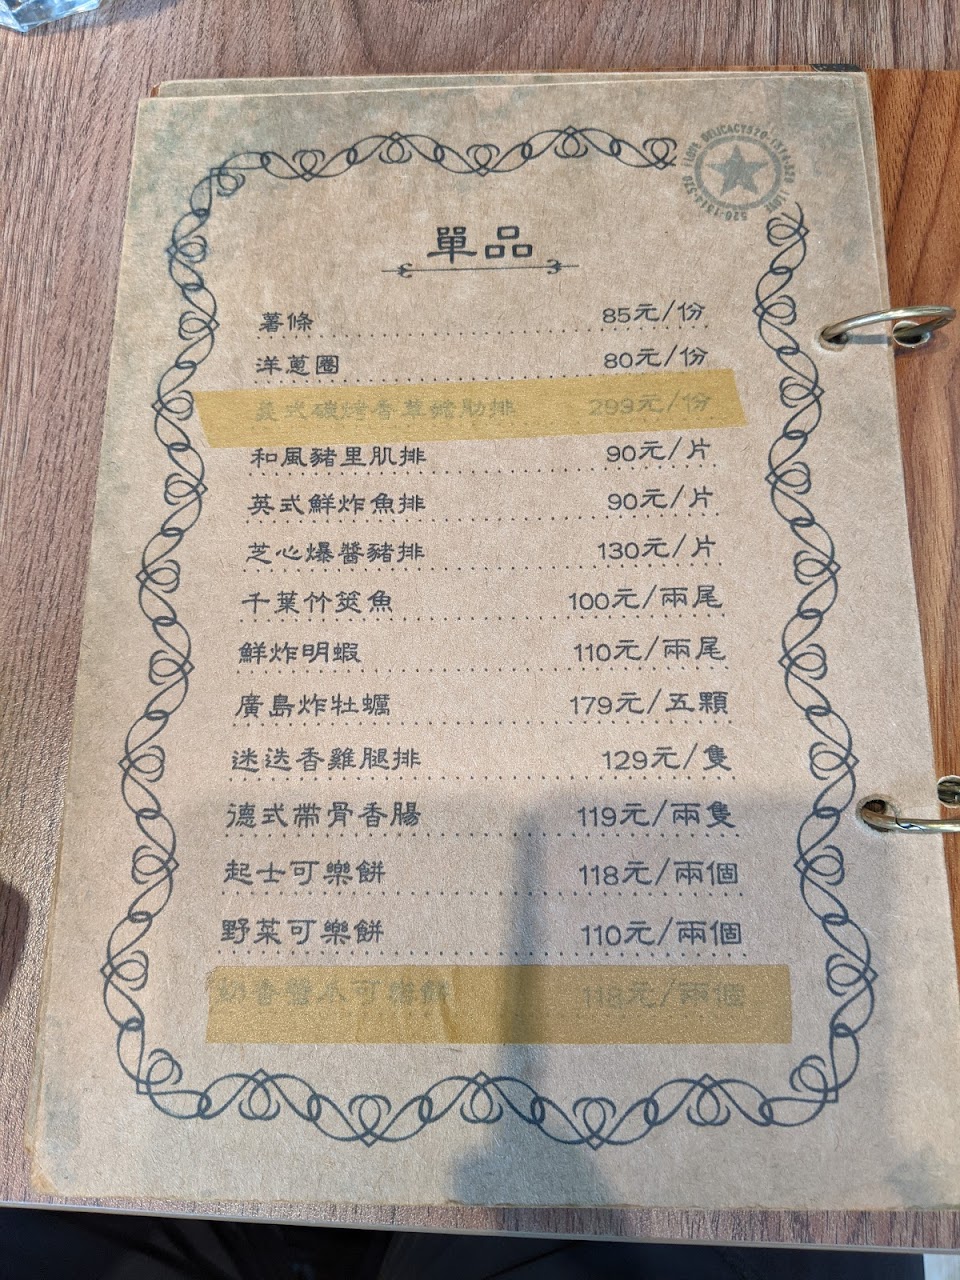 I LOVE DELICACY520-1314-520 I LOVE 520-1314-520
單品
薯條 85元/份
洋蔥圈 80元/份
美式碳烤香草豬肋排 293元/份
和風豬里肌排 90元/片
英式鮮炸魚排 90元/片
芝心爆醬豬排 130元/片
千葉竹筴魚 100元/兩尾
鮮炸明蝦 110元/兩尾
廣島炸牡蠣 179元/五顆
迷迭香雞腿排 129元/隻
德式帶骨香腸 119元/兩隻
起士可樂餅 118元/兩個
野菜可樂餅 110元/兩個
118元/兩個